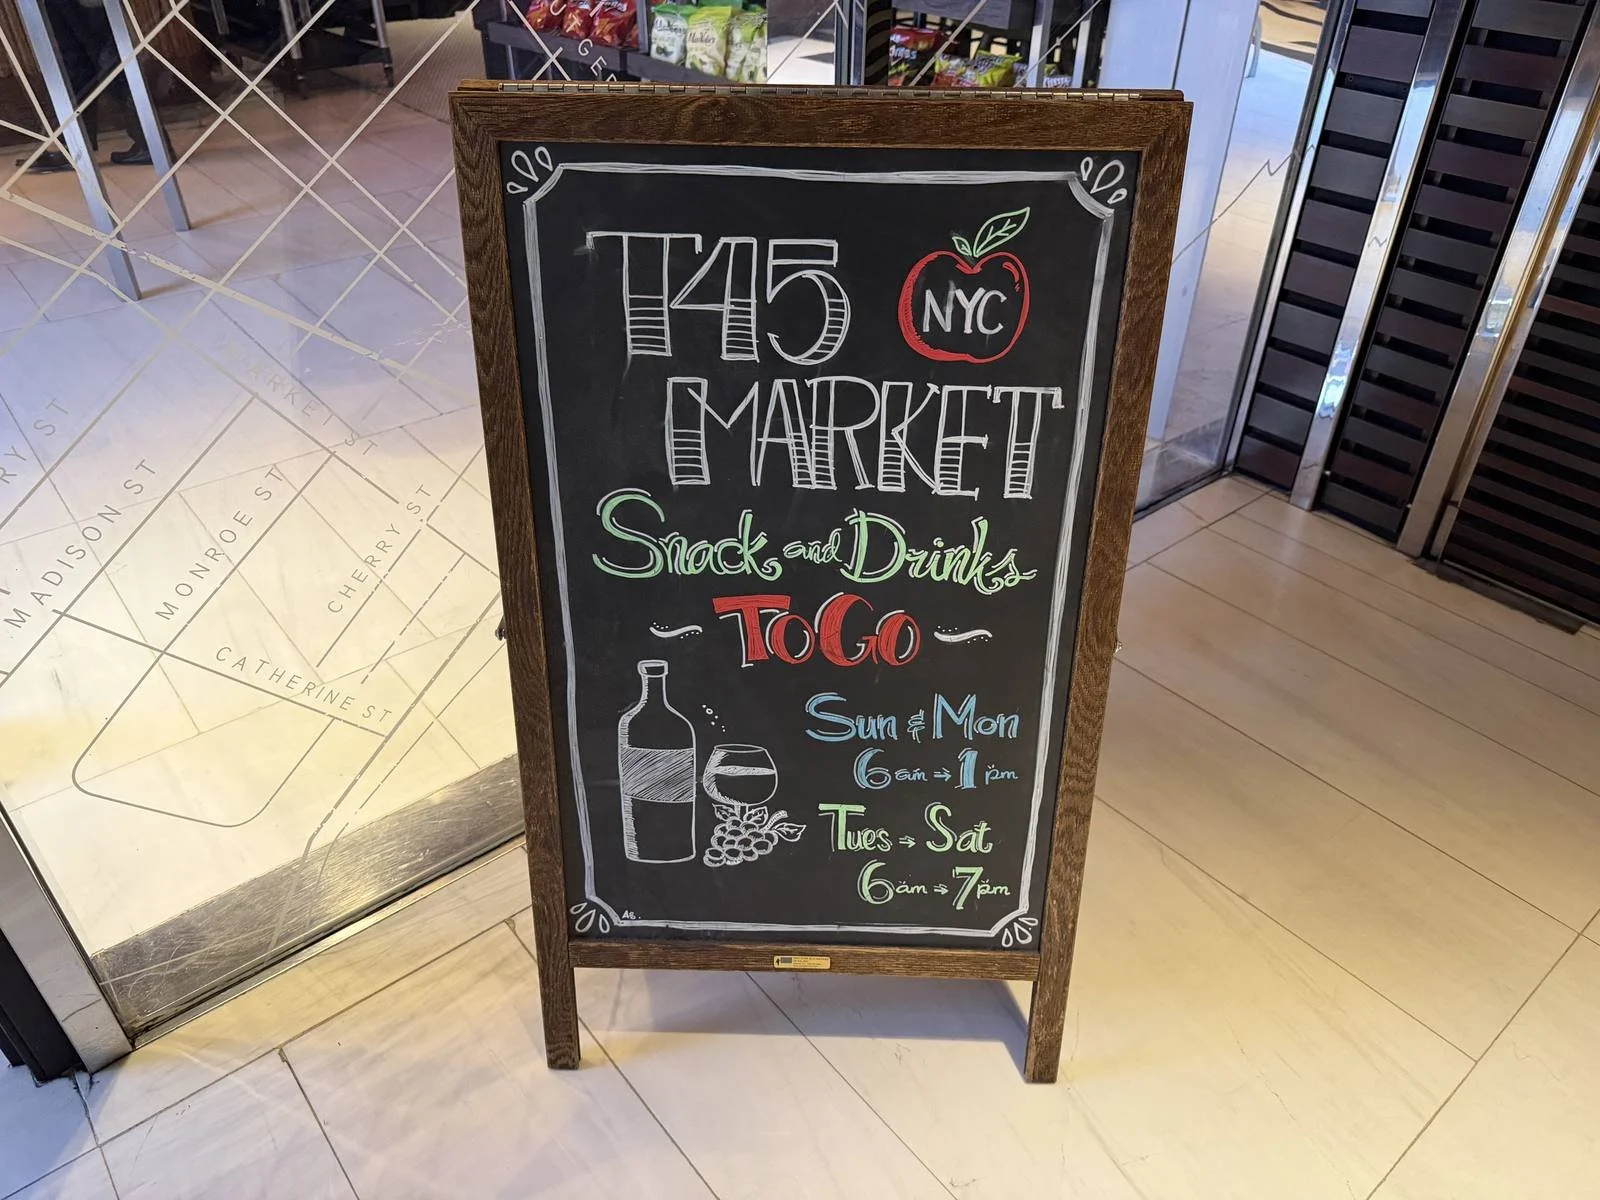 T45
NYC
MARKET
Snack and Drinks
To Go
Sun & Mon
6am → 1pm
Tues → Sat
6am → 7pm
MARKET ST
MADISON ST
MONROE ST
CHERRY ST
CATHERINE ST